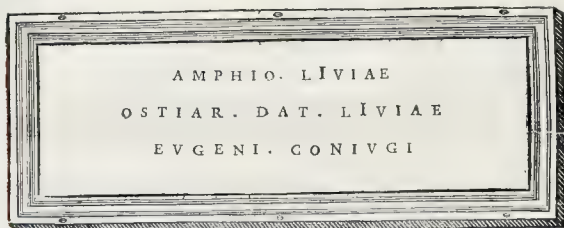 AMPHIO. LIVIAE
OSTIAR. DAT. LIVIAE
EVGENI. CONIVGI